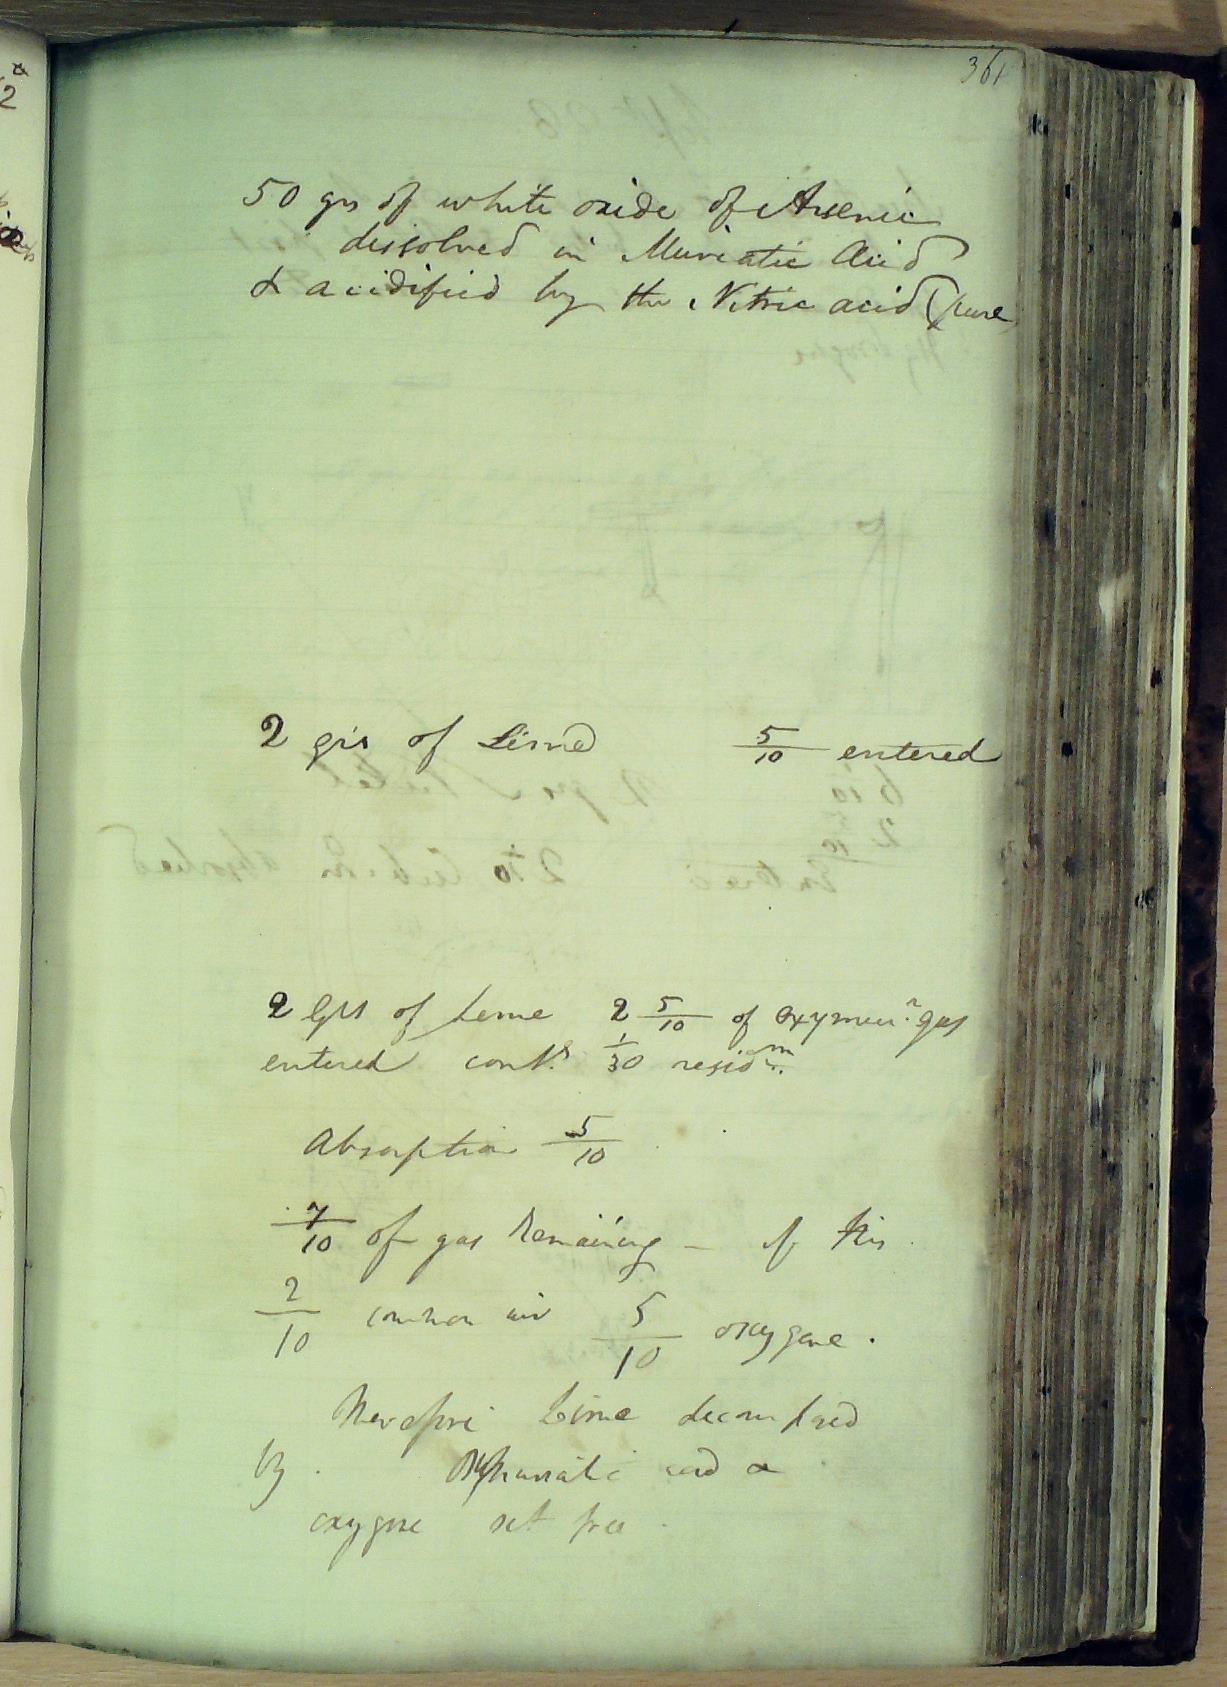 361
50 grs of white oxide of Arsenic
dissolved in Muriatic Acid
& acidified by the Nitric acid (pure
2 grs of Lime 5/10 entered
2 Grs of Lime 2 5/10 of oxymur. gas
entered cont.g 1/30 resid.m
Absorption 5/10
7/10 of gas remaining – of this
2/10 common air 5/10 oxygene.
Therefore Lime decomposed
by Oxymuriatic acid &
oxygene set free.